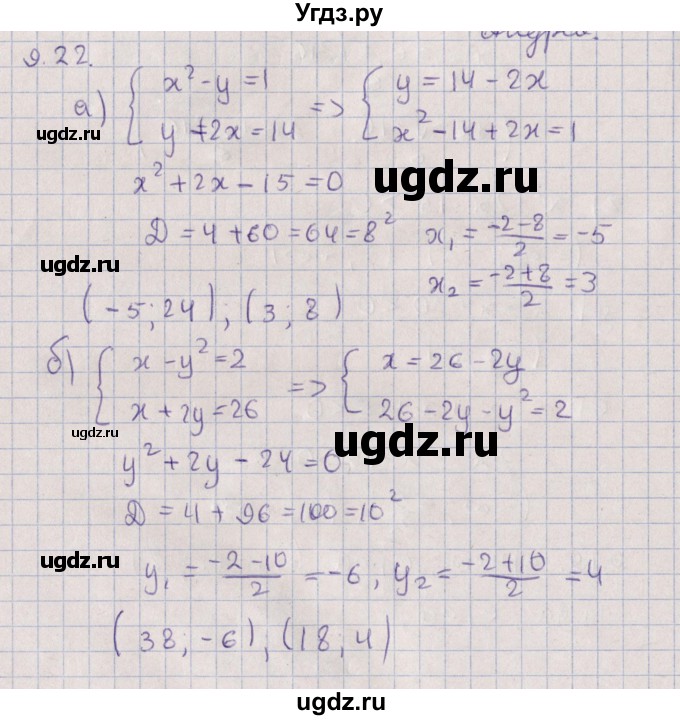 Угдз.ру
9.22.
а) { x² - y = 1 => { y = 14 - 2x
y + 2x = 14 x² - 14 + 2x = 1
ugdz.ru
ugdz.ru
x² + 2x - 15 = 0
Д = 4 + 60 = 64 = 8² x₁ = (-2-8)/2 = -5
ugdz.ru
x₂ = (-2+8)/2 = 3
(-5; 24); (3; 8)
б) { x - y² = 2 => { x = 26 - 2y
x + 2y = 26 26 - 2y - y² = 2
ugdz.ru
ugdz.ru
y² + 2y - 24 = 0
Д = 4 + 96 = 100 = 10²
ugdz.ru
y₁ = (-2-10)/2 = -6, y₂ = (-2+10)/2 = 4
(38; -6); (18; 4)
ugdz.ru